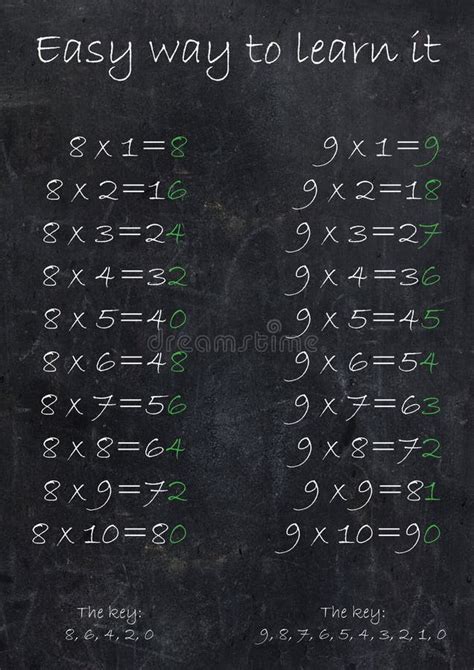 Easy way to learn it
8 x 1=8
8 x 2=16
8 x 3=24
8 x 4=32
8 x 5=40
8 x 6=48
8 x 7=56
8 x 8=64
8 x 9=72
8 x 10=80
The key:
8, 6, 4, 2, 0
9 x 1=9
9 x 2=18
9 x 3=27
9 x 4=36
9 x 5=45
9 x 6=54
9 x 7=63
9 x 8=72
9 x 9=81
9 x 10=90
The key:
9, 8, 7, 6, 5, 4, 3, 2, 1, 0
dreamstime.com